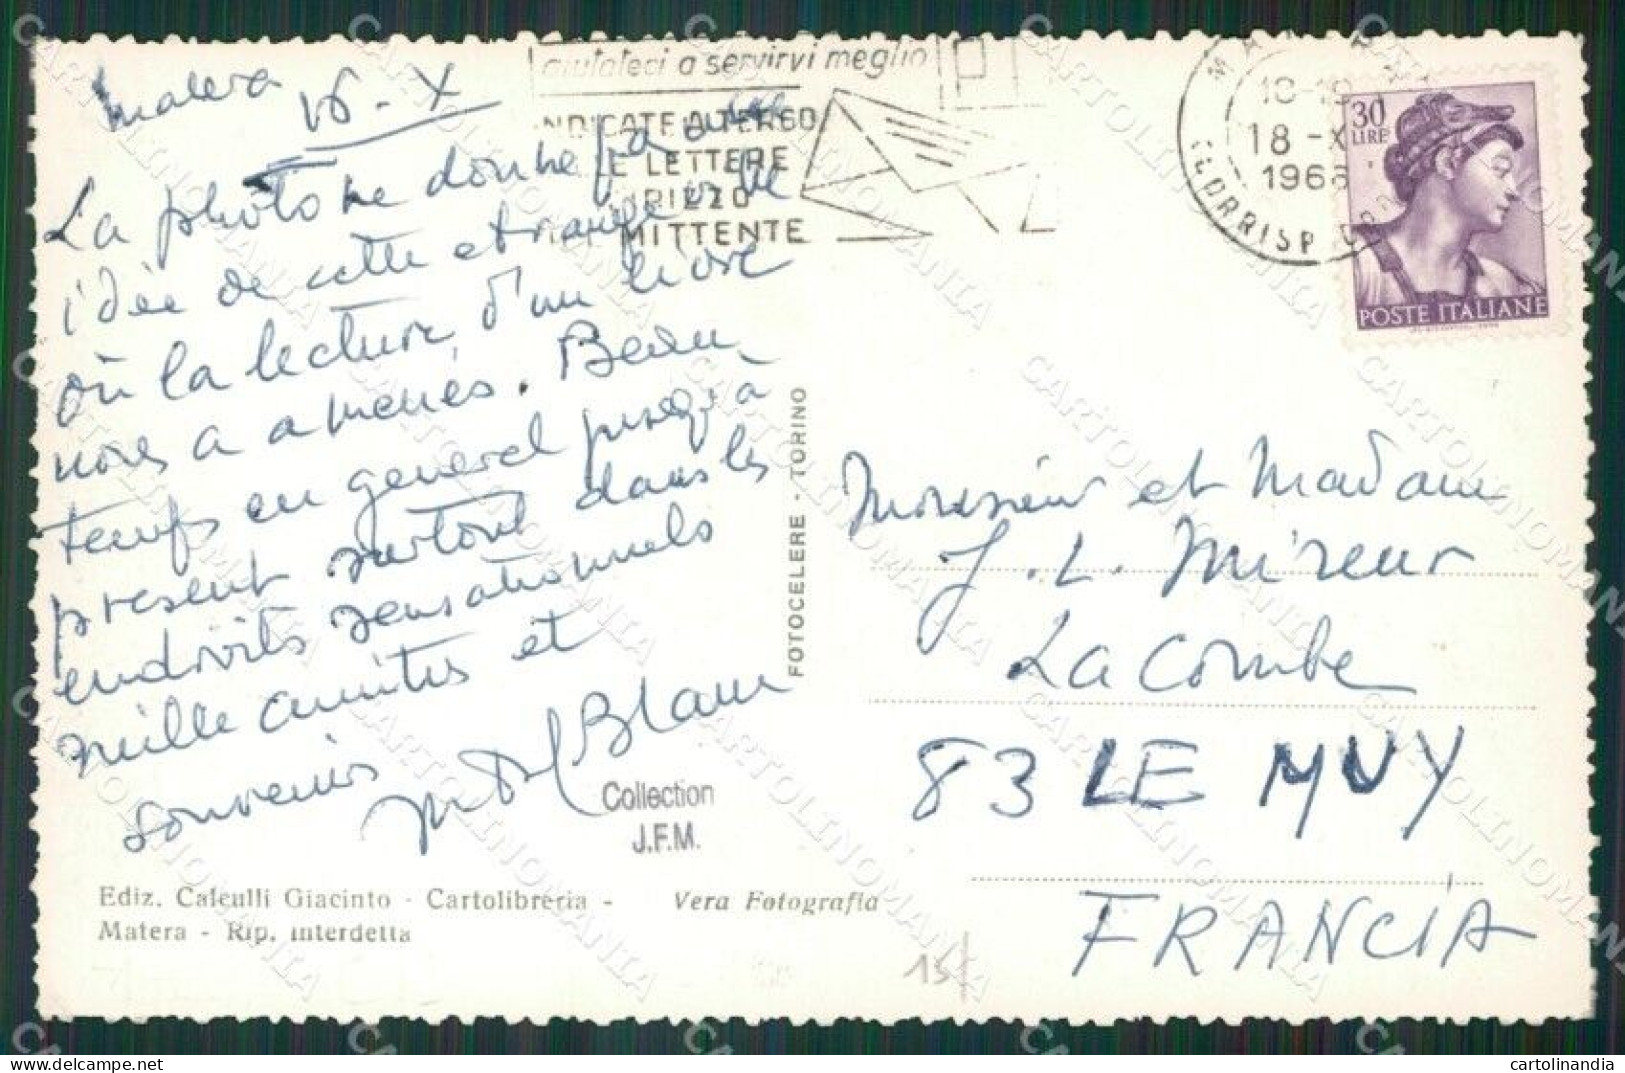 Matera
16 - X
La photo ne donne pas une
idée de cette etrange ville
où la lecture d'un livre
nous a amenés. Beau
temps en general jusqu'à
present surtout dans les
endroits sensationnels
mille amitiés et
souvenirs
Blanc
Collection
J.F.M.
Ediz. Calculli Giacinto - Cartolibreria -
Matera - Rip. interdetta
Vera Fotografia
FOTOCELERE - TORINO
aiutateci a servirvi meglio
INDICATE A TERGO
LE LETTERE
MITTENTE
18-19
18 - X
CORRISP
30
LIRE
POSTE ITALIANE
Monsieur et Madame
J. L. Mireur
La Combe
83 LE MUY
FRANCIA
15
CARTOLINOMANIA
cartolinandia